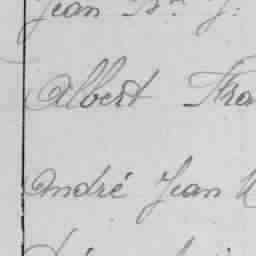 Jean Bte J.
Albert Fra
André Jean